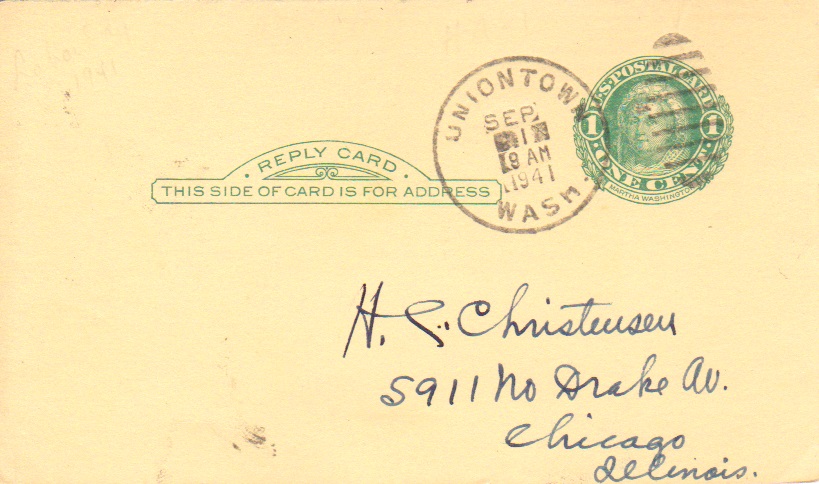 UNIONTOWN
SEP
1
8 AM
1941
WASH.
U·S·POSTAL CARD
1 1
·ONE CENT·
MARTHA WASHINGTON
·REPLY CARD·
THIS SIDE OF CARD IS FOR ADDRESS
H. C. Christensen
5911 No Drake Av.
Chicago
Illinois.